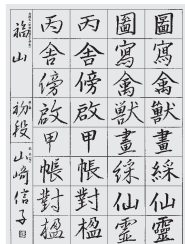 圖寫禽獸畫綵仙靈
圖寫禽獸畫綵仙靈
丙舍傍啟甲帳對楹
丙舍傍啟甲帳對楹
福山 初段 山崎信子